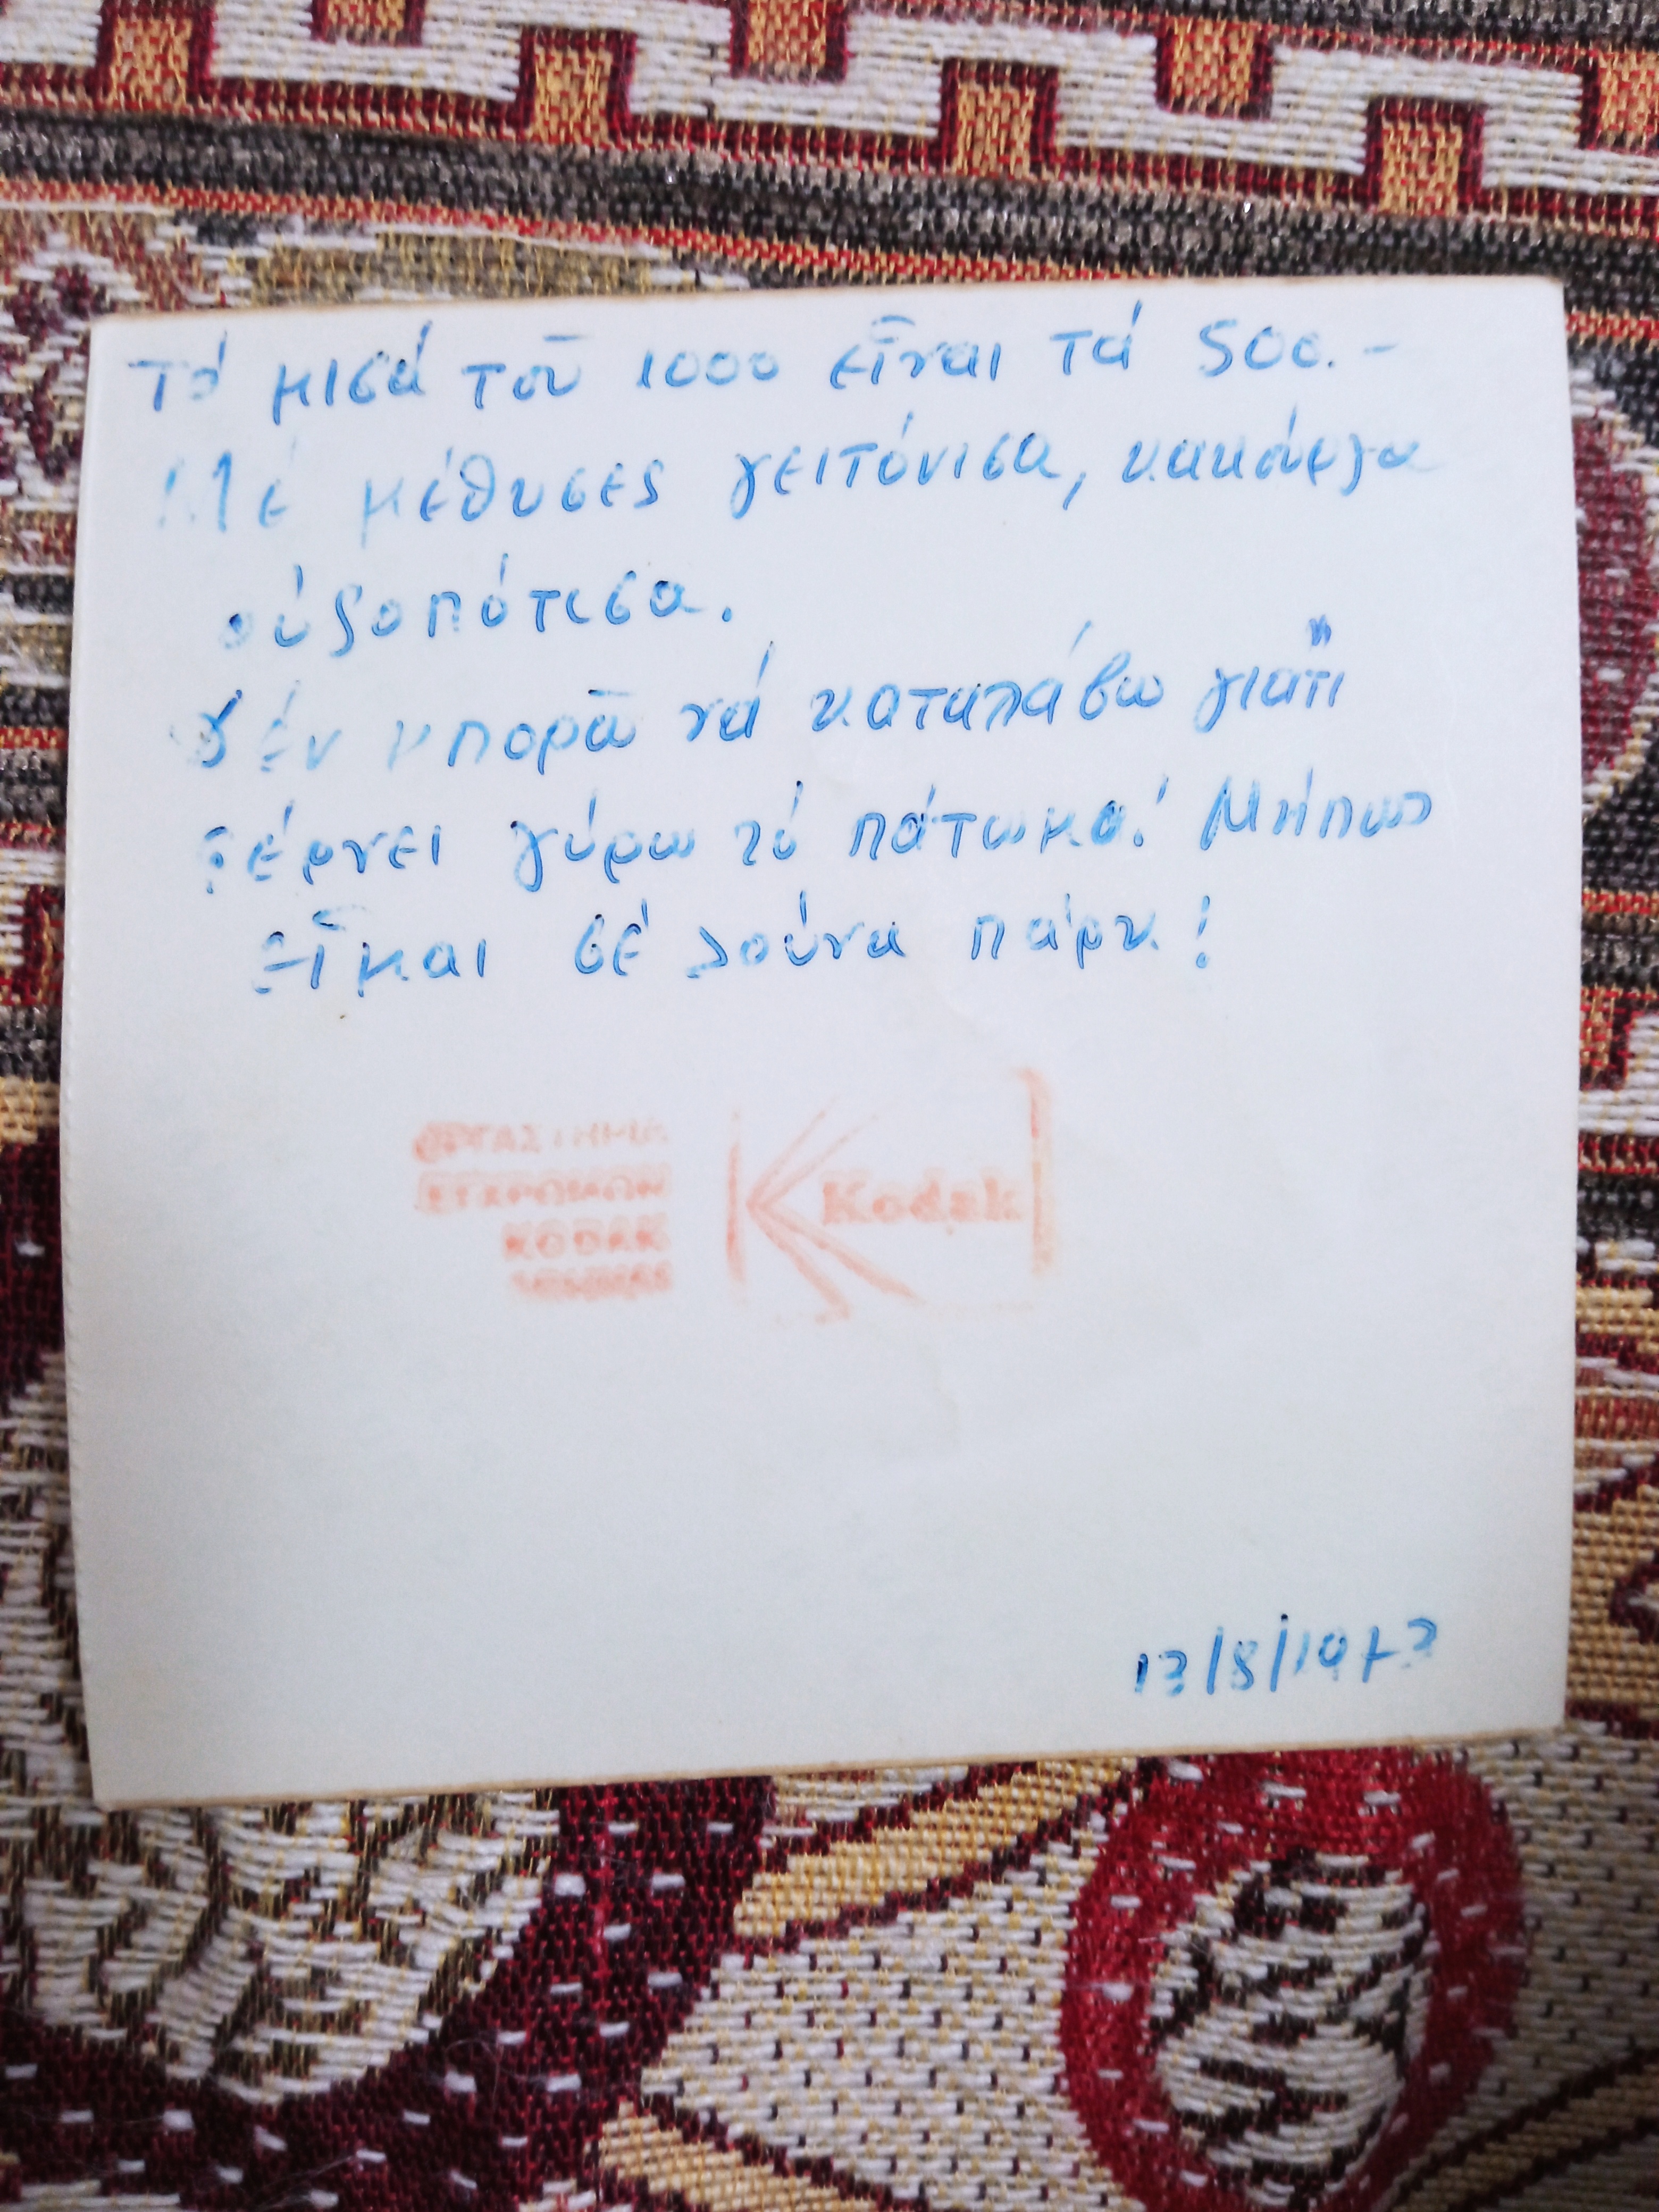 Τά μισά τοῦ 1000 εἶναι τά 500.-
Μέ μέθυσες γειτόνισα, κακούργα
ούζοπότισα.
Δέν μπορῶ νά καταλάβω γιατί
φέρνει γύρω τό πάτωμα! Μήπως
εἶμαι σέ λούνα πάρκ!
ΕΡΓΑΣΤΗΡΙΑ
ΕΓΧΡΩΜΩΝ
KODAK
Kodak
13/8/1973